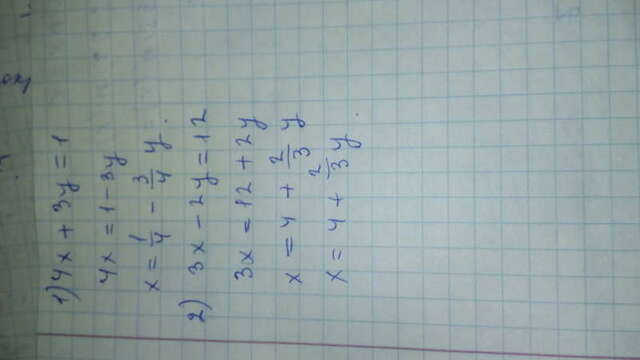 1) 4x + 3y = 1
4x = 1 - 3y
x = 1/4 - 3/4 y.
2) 3x - 2y = 12
3x = 12 + 2y
x = 4 + 2/3 y
x = 4 + 2/3 y.